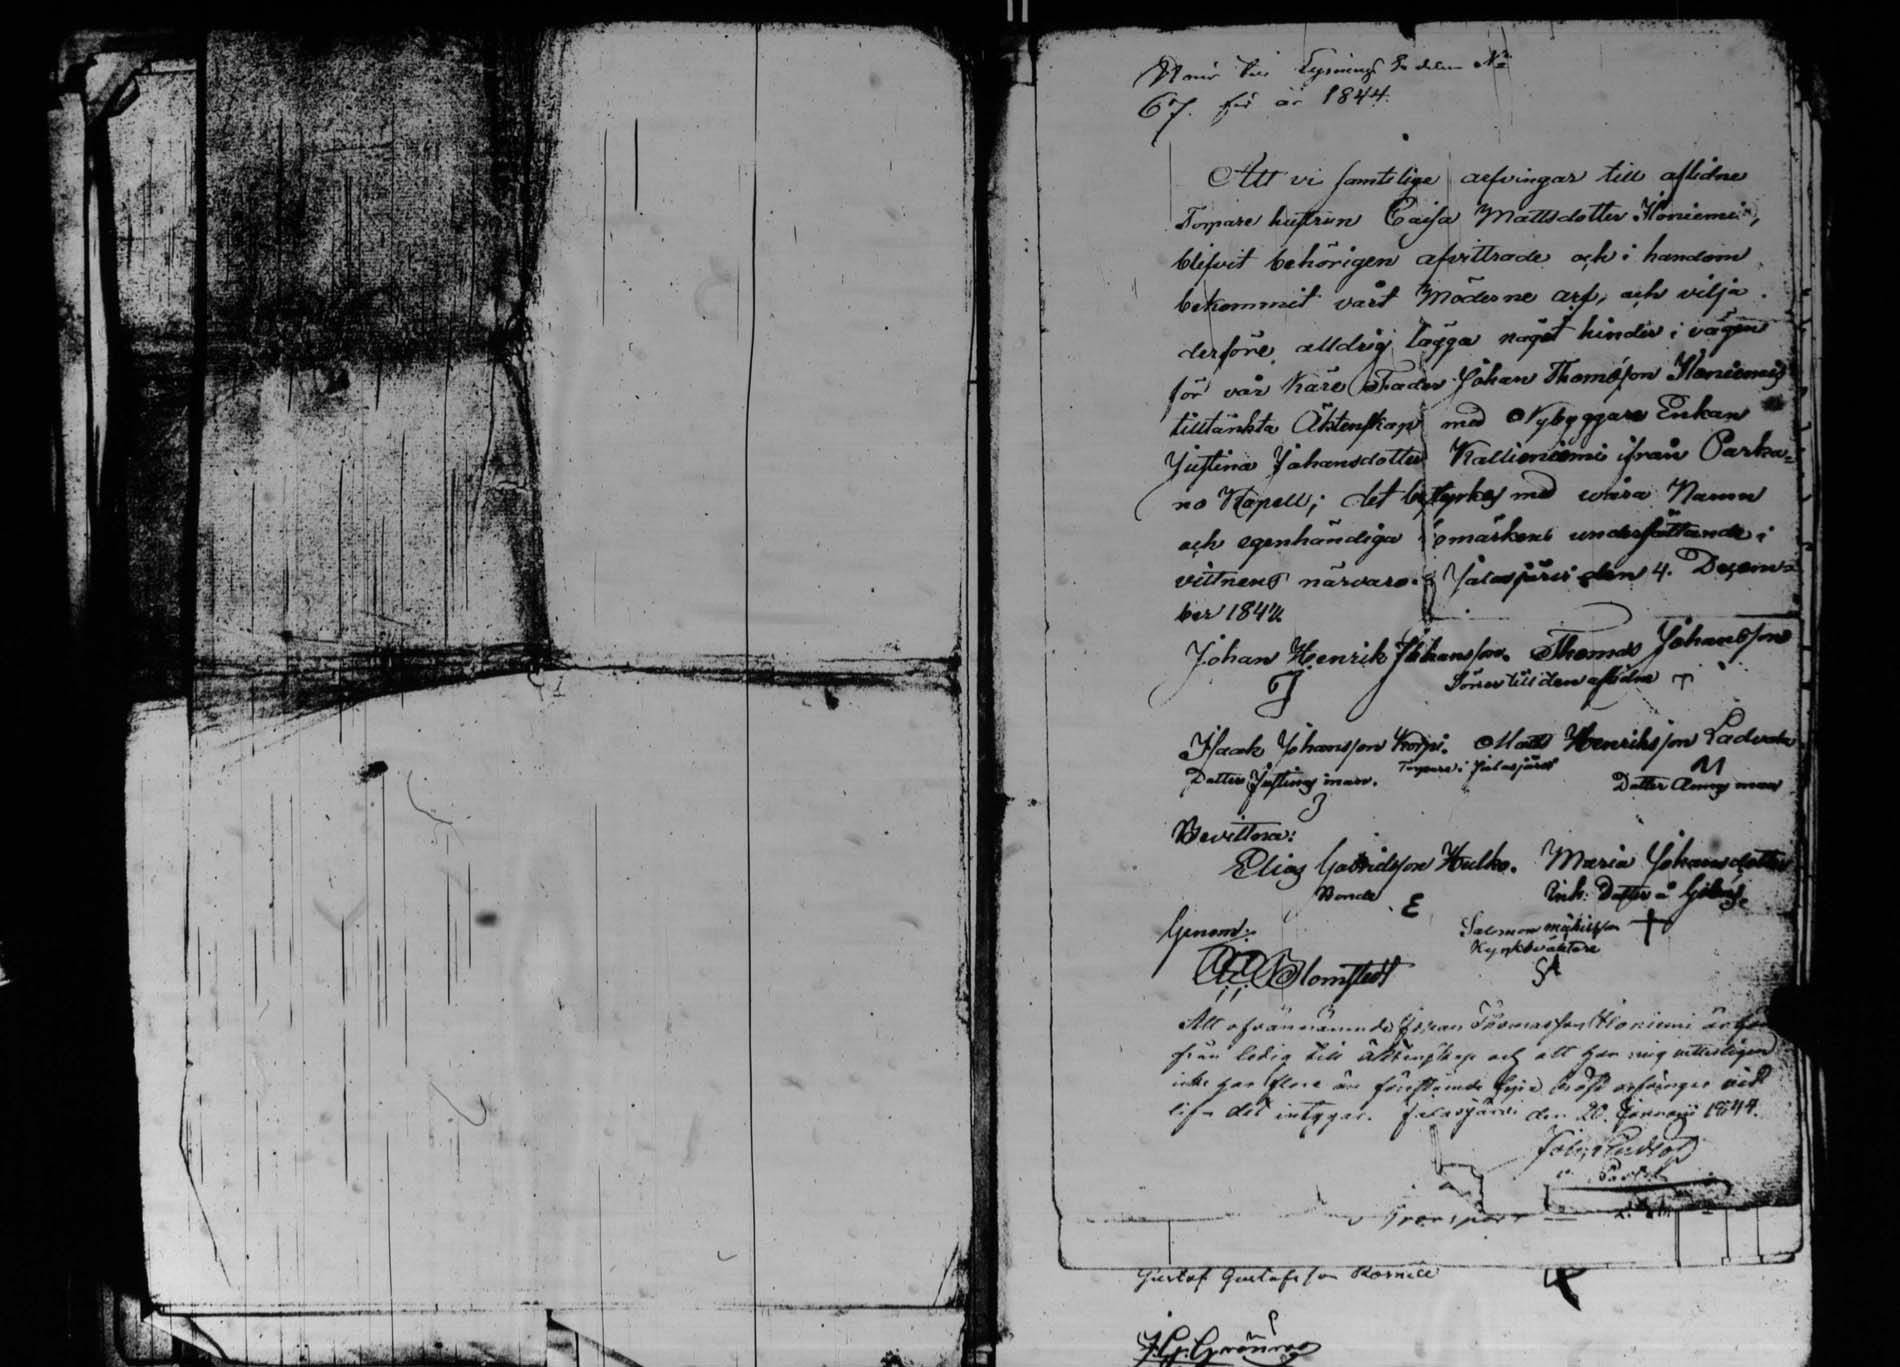 Lysnings Sedeln No
67. för år 1844.
Att vi samtelige arfvingar till aflidne
Torpare hustrun Caisa Mattsdotter Koniemi,
blifvit behörigen afvittrade och i handom
bekommit vårt Möderne arf, och vilja
derföre alldrig lägga något hinder i vägen
för vår Käre Fader Johan Thomasson Koniemis
tilltänkta Äktenskap med Nybyggare Enkan
Justina Johansdotter Kallioniemi ifrån Parka=
no Kapell; det bestyrkes med wåra Namn
och egenhändiga bomärkens undersättande i
vittnens närvaro. Jalasjärvi den 4. Decem=
ber 184
Johan Henrik Johansson. Thomas Johansson
Söner till den aflidne
Isaak Johansson Korpi. Matts Henriksson Ladvala
Dotter Justinas man. Torpare i Jalasjärvi M
Dotter Annas man
Bevittna:
Elias Gabrielsson Hulko. Maria Johansdotter
Bonde E Inh. Dotter
Genom: Salomon
Kyrkoväktare
Blomstedt SA
Att ofvannämnde Johan Thomasson Koniemi är
från ledig till äktenskap och att han mig vetterligen
icke har flere än förestående bröst arfvingar vid
lif det intygar. Jalasjärvi den 20. Januarii 1844.
Transport
Gustaf Gustafsson
J. G. Grönroos